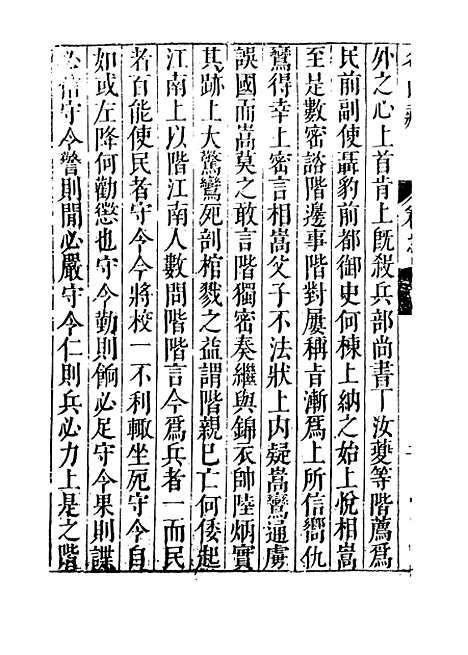 外之心上首肯上既殺兵部尚書丁汝夔等階薦爲
民前副使聶豹前都御史何棟上納之始上悅相嵩
至是數密諮階邊事階對屢稱旨漸爲上所信嚮仇
鸞得幸上密言相嵩父子不法狀上內疑嵩鸞通虜
誤國而嵩莫之敢言階獨密奏繼與錦衣帥陸炳實
其跡上大驚鸞死剖棺戮之益謂階親已亡何倭起
江南上以階江南人數問階階言今爲兵者一而民
者百能使民者守令今將校一不利輙坐死守令自
如或左降何勸懲也守令勤則餉必足守令果則諜
必信守令警則閒必嚴守令仁則兵必力上是之階